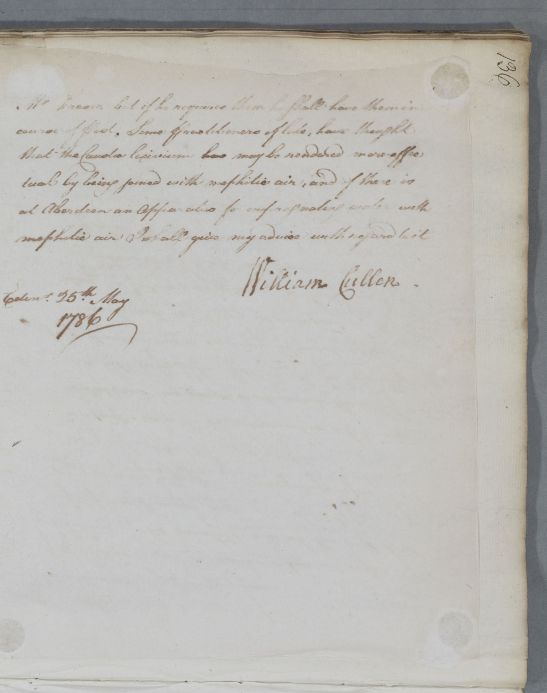 196
Mr Brown but if he requires them he shall have them in
course of Post. Some Practitioners of late, have thought
that the Caustic lixivium may be rendered more effec
tual by being joined with mephitic air, and if there is
at Aberdeen an Apparatus for impregnating water with
mephitic air I shall give my advice with regard to it
William Cullen.
Edinr. 25th May
1786